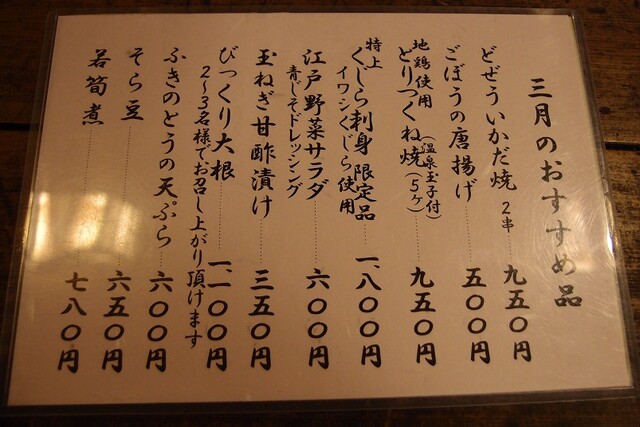 三月のおすすめ品
どぜういかだ焼 2串 九五〇円
ごぼうの唐揚げ 五〇〇円
地鶏使用 とりつくね焼 (温泉玉子付)(5ヶ) 九五〇円
特上 くじら刺身 限定品 一、八〇〇円
イワシくじら使用
江戸野菜サラダ 六〇〇円
青じそドレッシング
玉ねぎ甘酢漬け 三五〇円
びっくり大根 一、一〇〇円
2〜3名様でお召し上がり頂けます
ふきのとうの天ぷら 六〇〇円
そら豆 六五〇円
若筍煮 七八〇円